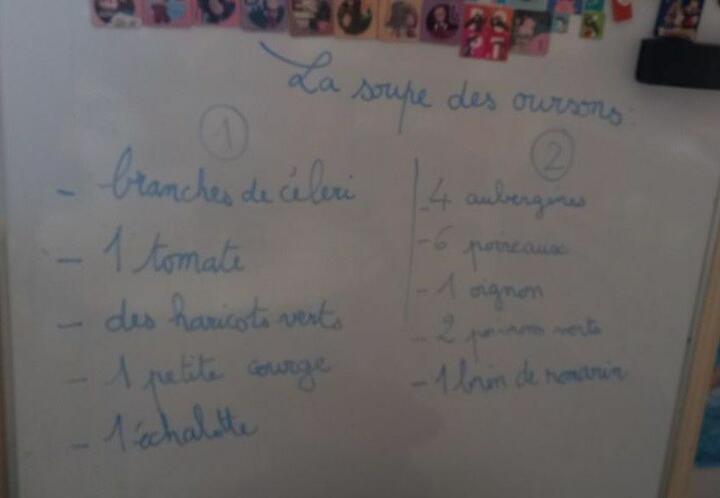 La soupe des oursons:
1
- branches de céleri
- 1 tomate
- des haricots verts
- 1 petite courge
- 1 échalotte
2
- 4 aubergines
- 6 poireaux
- 1 oignon
- 2 poivrons verts
- 1 brin de romarin